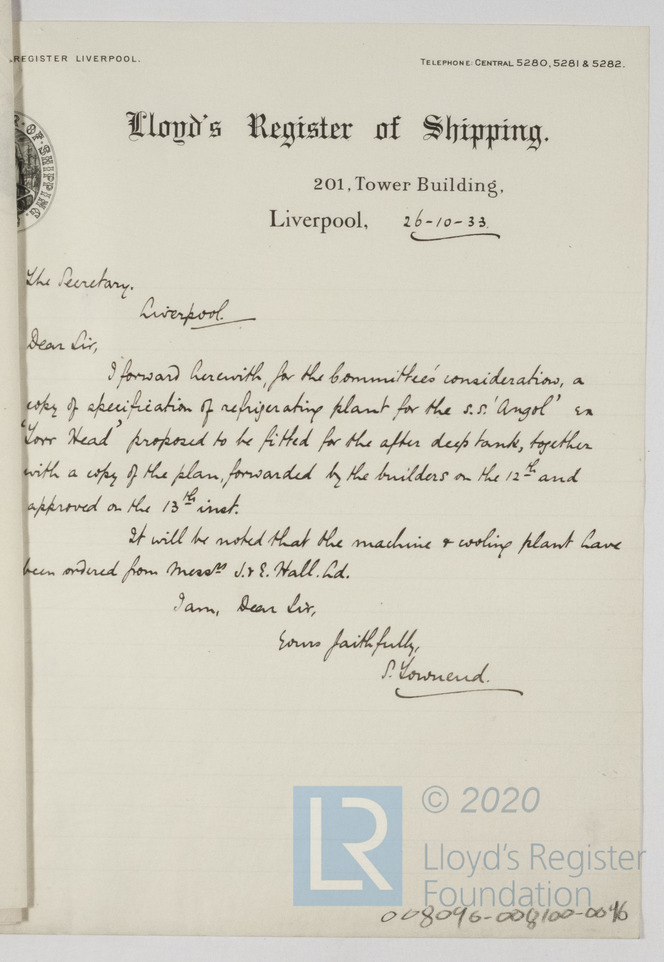 REGISTER LIVERPOOL.
TELEPHONE: CENTRAL 5280, 5281 & 5282.
OF SHIPPING
Lloyd's Register of Shipping.
201, Tower Building,
Liverpool, 26-10-33.
The Secretary.
Liverpool.
Dear Sir,
I forward herewith, for the Committee's consideration, a
copy of specification of refrigerating plant for the s.s. 'Angol' ex
Torr Head' proposed to be fitted for the after deep tank, together
with a copy of the plan, forwarded by the builders on the 12th and
approved on the 13th inst.
It will be noted that the machine & cooling plant have
been ordered from Messrs J. & E. Hall. Ld.
I am, Dear Sir,
Yours faithfully,
S. Townend.
LR
© 2020
Lloyd's Register
Foundation
008096-008100-0046